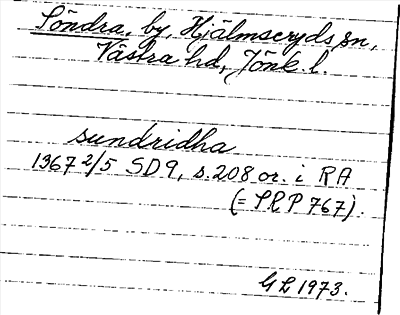 Söndra, by, Hjälmseryds sn,
Västra hd, Jönk. l.
sundridha
1367 2/5 SD9, s. 208 or. i RA
(= SRP 767).
GL 1973.